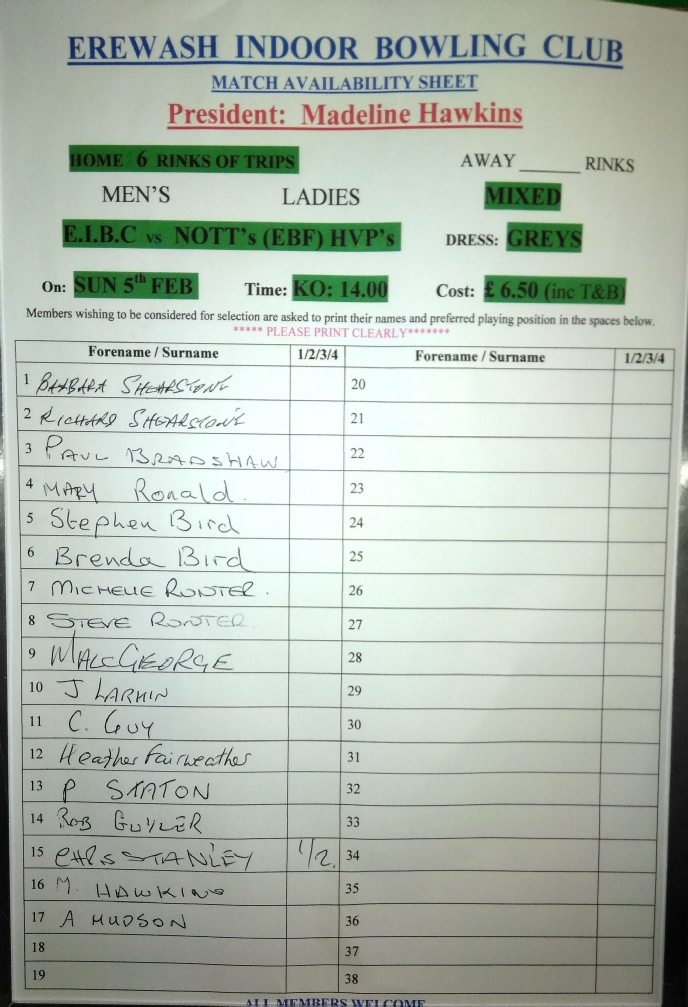 EREWASH INDOOR BOWLING CLUB
MATCH AVAILABILITY SHEET
President: Madeline Hawkins
HOME 6 RINKS OF TRIPS AWAY ______ RINKS
MEN'S LADIES MIXED
E.I.B.C vs NOTT's (EBF) HVP's DRESS: GREYS
On: SUN 5th FEB Time: KO: 14.00 Cost: £ 6.50 (inc T&B)
Members wishing to be considered for selection are asked to print their names and preferred playing position in the spaces below.
***** PLEASE PRINT CLEARLY*******
Forename / Surname 1/2/3/4 Forename / Surname 1/2/3/4
1 BARBARA SHEARSTONE 20
2 RICHARD SHEARSTONE 21
3 PAUL BRADSHAW 22
4 MARY Ronald. 23
5 Stephen Bird 24
6 Brenda Bird 25
7 MICHELLE ROWTER. 26
8 STEVE ROWTER. 27
9 MALC GEORGE 28
10 J LARKIN 29
11 C. GUY 30
12 Heather Fairweather 31
13 P STATON 32
14 ROB GUYLER 33
15 CHRS STANLEY 1/2. 34
16 M. HAWKINS 35
17 A HUDSON 36
18 37
19 38
ALL MEMBERS WELCOME